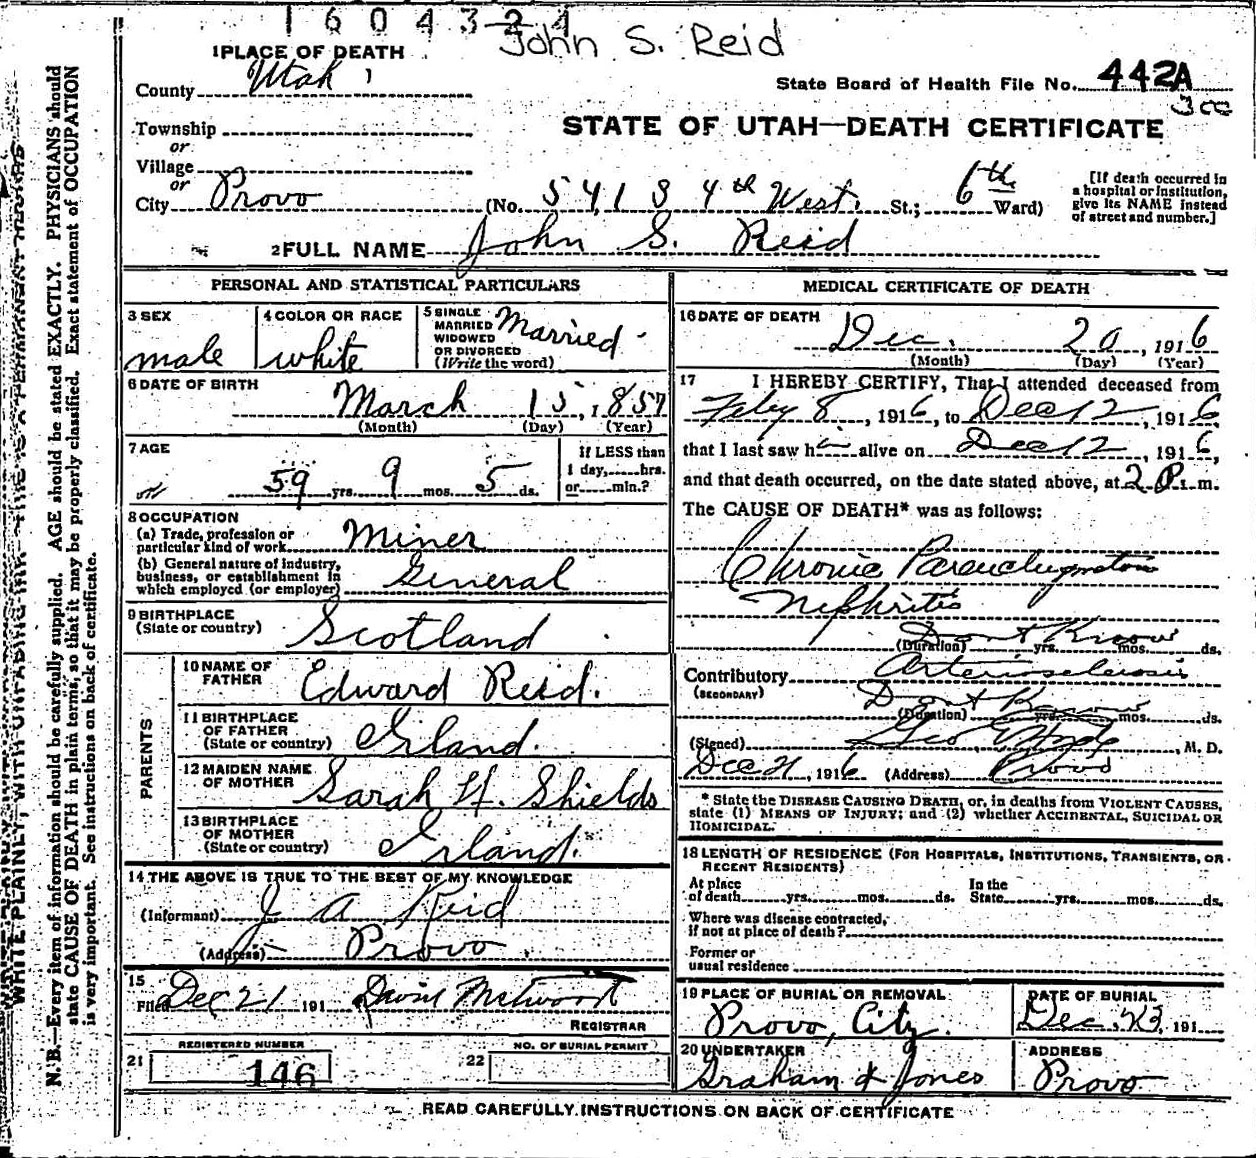 1604324
John S. Reid
1 PLACE OF DEATH
County Utah
State Board of Health File No. 442A
300
Township
or
Village
or
STATE OF UTAH—DEATH CERTIFICATE
City Provo (No. 541 S 4th West. St.; 6th Ward)
[If death occurred in a hospital or institution, give its NAME instead of street and number.]
2 FULL NAME John S. Reid
PERSONAL AND STATISTICAL PARTICULARS
3 SEX male
4 COLOR OR RACE white
5 SINGLE MARRIED WIDOWED OR DIVORCED (Write the word) Married
6 DATE OF BIRTH
March 15, 1857
(Month) (Day) (Year)
7 AGE
59 yrs. 9 mos. 5 ds.
If LESS than 1 day,.....hrs. or.....min.?
8 OCCUPATION
(a) Trade, profession or particular kind of work Miner
(b) General nature of industry, business, or establishment in which employed (or employer) General
9 BIRTHPLACE (State or country) Scotland
PARENTS
10 NAME OF FATHER Edward Reid.
11 BIRTHPLACE OF FATHER (State or country) Irland.
12 MAIDEN NAME OF MOTHER Sarah H. Shields
13 BIRTHPLACE OF MOTHER (State or country) Irland.
14 THE ABOVE IS TRUE TO THE BEST OF MY KNOWLEDGE
(Informant) J A Reid
(Address) Provo
15
Filed Dec 21 191
REGISTRAR
21 REGISTERED NUMBER 146
22 NO. OF BURIAL PERMIT
MEDICAL CERTIFICATE OF DEATH
16 DATE OF DEATH
Dec. 20, 1916
(Month) (Day) (Year)
17 I HEREBY CERTIFY, That I attended deceased from
Feby 8, 1916, to Dec 12, 1916,
that I last saw h alive on Dec 12, 1916,
and that death occurred, on the date stated above, at 2 P. m.
The CAUSE OF DEATH* was as follows:
Chronic
Nephritis
Dont Know
(Duration) yrs. mos. ds.
Contributory Arteriosclerosis
(SECONDARY)
Dont Know
(Duration) yrs. mos. ds.
(Signed) Geo , M. D.
Dec 21, 1916 (Address) Provo
* State the DISEASE CAUSING DEATH, or, in deaths from VIOLENT CAUSES, state (1) MEANS OF INJURY; and (2) whether ACCIDENTAL, SUICIDAL OR HOMICIDAL.
18 LENGTH OF RESIDENCE (FOR HOSPITALS, INSTITUTIONS, TRANSIENTS, OR RECENT RESIDENTS)
At place of death yrs. mos. ds. In the State yrs. mos. ds.
Where was disease contracted, if not at place of death?
Former or usual residence
19 PLACE OF BURIAL OR REMOVAL
Provo, City.
DATE OF BURIAL
Dec. 23, 191
20 UNDERTAKER
Graham & Jones
ADDRESS
Provo
READ CAREFULLY INSTRUCTIONS ON BACK OF CERTIFICATE
WRITE PLAINLY, WITH UNFADING INK—THIS IS A PERMANENT RECORD
N. B.—Every item of information should be carefully supplied. AGE should be stated EXACTLY. PHYSICIANS should
state CAUSE OF DEATH in plain terms, so that it may be properly classified. Exact statement of OCCUPATION
is very important. See instructions on back of certificate.